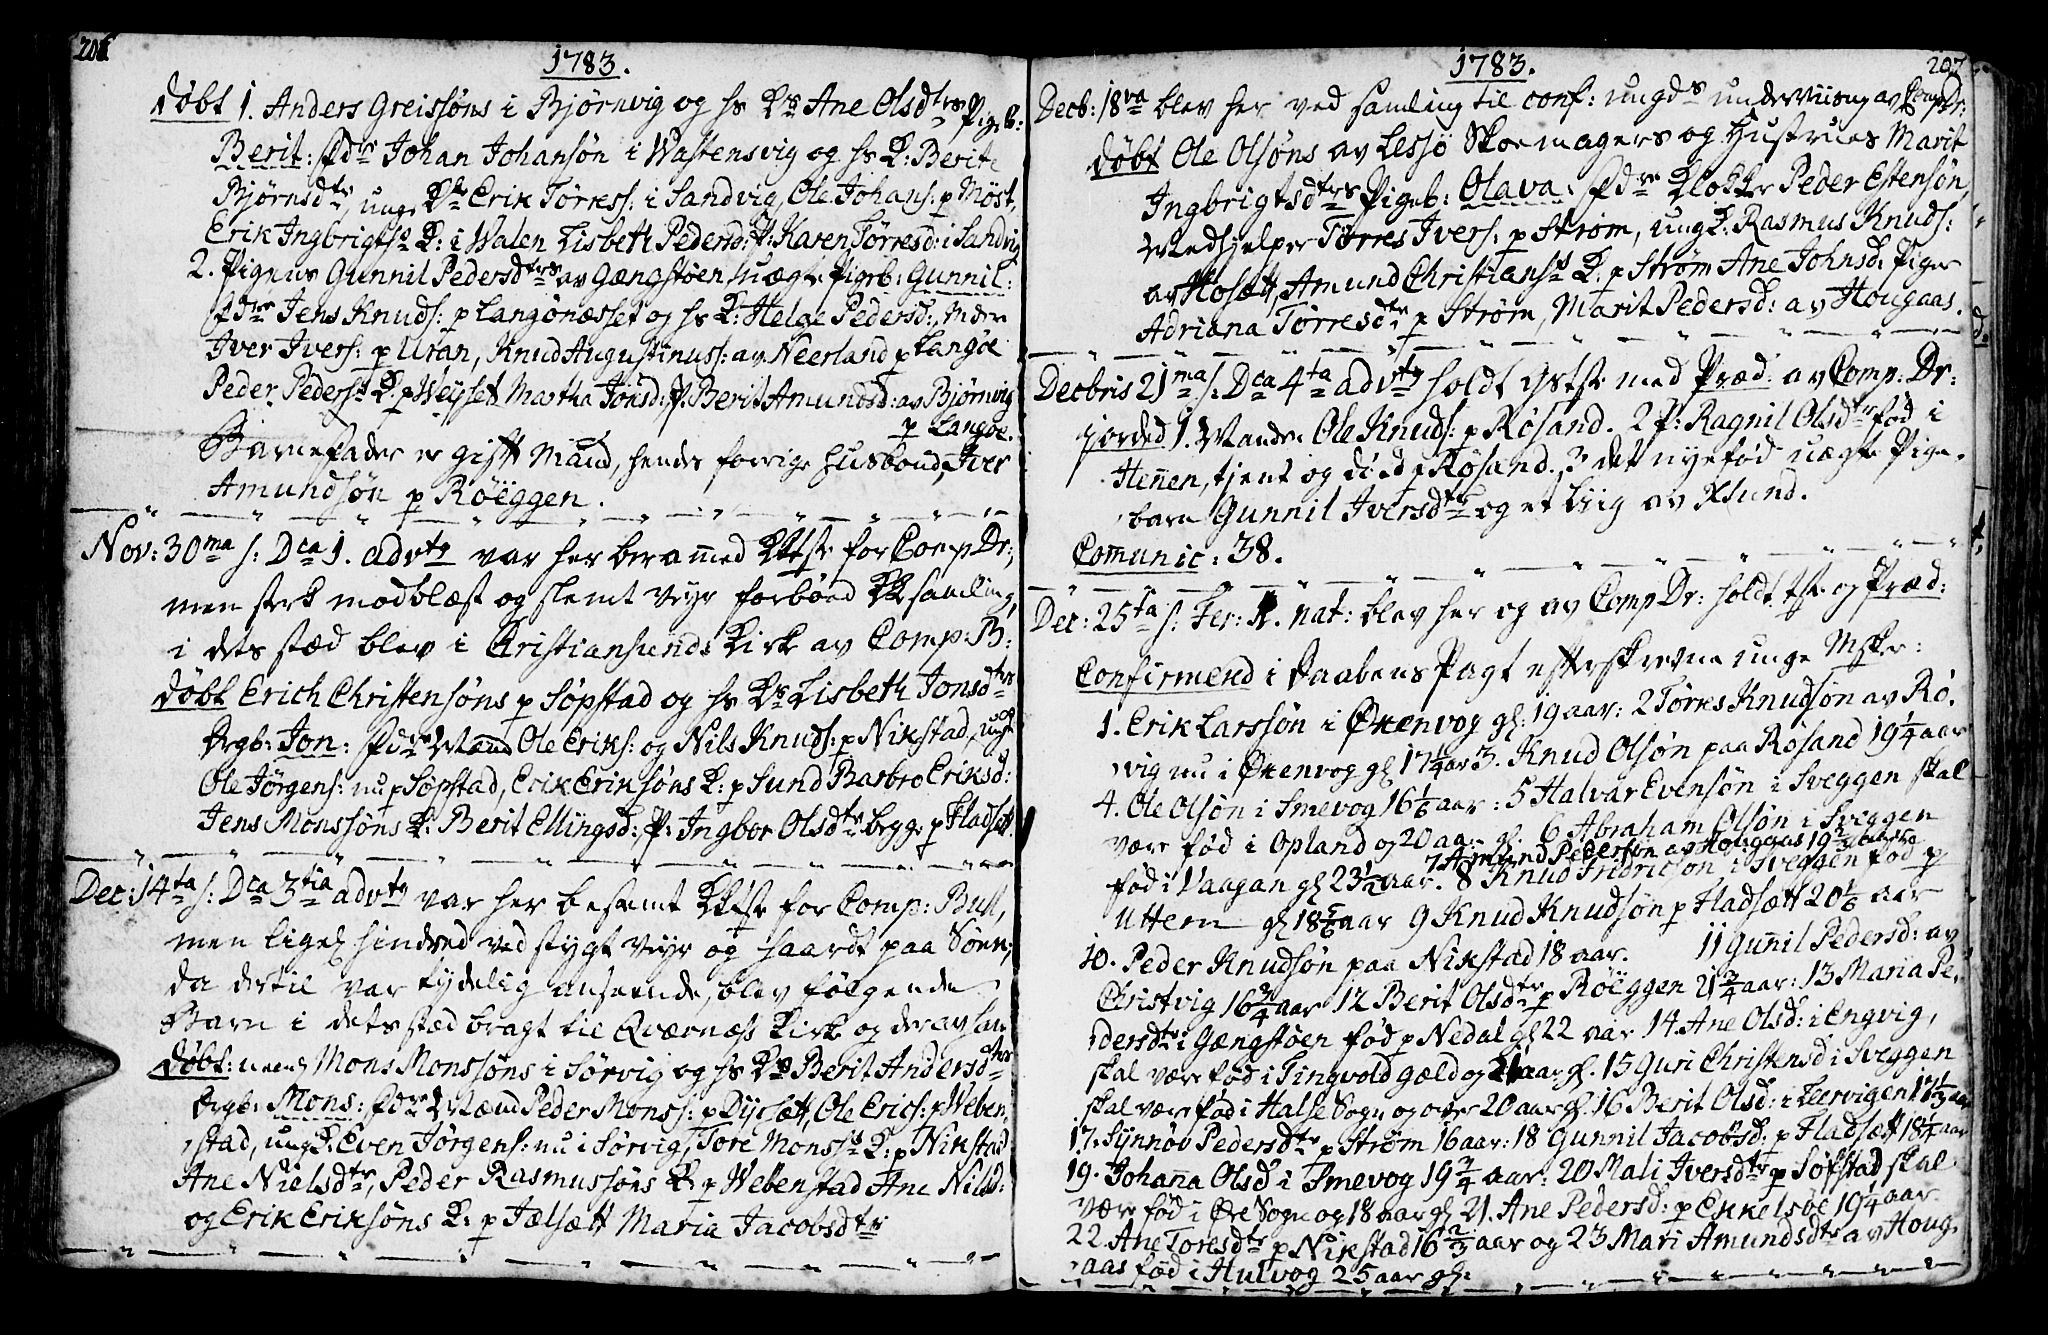 206
1783.
døbt 1. Anders Greissøns i Bjørnvig og hs Ks Ane Olsdtrs Pigeb:
Berit: fdre Johan Johansøn i Wastensvig og hs K: Berite
Bjørnsdtr, ung Kl Erik Törress: i Sandvig, Ole Johans: p Møst,
Erik Ingbrigtss K: i Walen Lisbeth Pedersd: P: Karen Törresd: i Sandvig
2. Pigens Gunnil Pedersdtrs av Gængstøen uægte Pigeb: Gunnil:
fdre Jens Knuds: p Langønæsset og hs K: Helge Pedersd:,
Iver Ivers: p Uran, Knud Augustinuss: av Neerland p Langøe
Peder Pederss K: p Weyset Martha Jonsd: P: Berit Amundsd: av Bjørnvig
p Langøe.
Barnefader er gift Mand, hendes forrige Husbond, Iver
Amundsøn p Røeggen.
Nov: 30ma s: Dca 1. advtg var her beramed Ktste for Comp Dr:,
men sterk modblæst og slemt veyr forbød Ksamling,
i dets stæd blev i Christiansunds Kirke av Comp: B:
døbt Erich Christensøns p Søpstad og hs Ks Lisbeth Jonsdtrs
Drgb: Jon: fdre Mænd Ole Eriks: og Nils Knuds: p Nikstad, ungk
Ole Jörgens: nu p Søpstad, Erik Eriksøns K: p Sund Barbro Eriksd:
Jens Monssøns K: Berit Ellingsd:, P: Ingbor Olsdtr begge p Fladsett.
Dec: 14ta s: Dca 3tia advtg var her bestemt Ktste for Comp: Bull,
men ligesaa hindred ved stygt veyr og haardt paa Søen,
da dertil var tydelig anseende, blev følgende
Barn i dets stæd bragt til Qværnæss Kirke og der av ham
døbt: Mons Monssøns i Sørvig og hs Ks Berit Andersdtrs
Drgb: Mons: fdre Mænd Peder Monss: p Dysett, Ole Erics: p Weben,
stad, ungk: Even Jörgens: nu i Sørvig, Tore Monsss K: p Nikstad
Ane Nielsdtr, Peder Rasmussøns K: p Webenstad Ane Nilsd:
og Erik Eriksøns K: p Jælsætt Maria Jacobsdtr
207
1783.
Decb: 18va blev her ved samling til conf: ungds underviisng av Comp Dr:
døbt Ole Olsøns av Lessø Skoemagers og Hustrues Marit
Ingbrigtsdtrs Pigeb: Olava: fdre Klokker Peder Estensøn,
Medhjelper Törres Ivers: p Strøm, ungk: Rasmus Knuds:
av Hosett, Amund Christianss K: p Strøm Ane Johnsd: Piger
Adriana Törresdtr p Strøm, Marit Pedersd: av Hougaas.
Decbris 21ma s: Dca 4ta advtg holdt Gstste med Præd: av Comp: Dr:
jorded 1. Manden Ole Knuds: p Røsand. 2 P: Ragnil Olsdtr fød i
Hennen, tjent og død p Røsand. 3 det nyefød uægte Pige-
barn Gunnil Iversdtr og et liig av Xsund.
Comunic: 38.
Dec: 25ta s: Fer: 1. nat: blev her og av Comp Dr: holdt tste og Præd:
Confirmend i Daabens Pagt efterskrevne unge Msker:
1. Erik Larssøn i Ørenvog gl: 19 aar: 2 Törres Knudsøn av Rø,
vig nu i Ørenvog gl 17 1/4 aar 3. Knud Olsøn paa Røsand 19 1/4 aar
4. Ole Olsøn i Smevog 16 1/6 aar: 5 Halvar Evensøn i Sveggen skal
være fød i Opland og 20 aar gl. 6 Abraham Olsøn i Sveggen
7 Amund Pedersøn av Hougaas 19 3/4 aar
fød i Vaagan gl 23 1/2 aar. 8 Knud Fridricsøn i Sveggen fød p
Uttem gl 18 5/6 aar 9 Knud Knudsøn p Fladsætt 20 1/6 aar
10. Peder Knudsøn paa Nikstad 18 aar. 11 Gunnil Pedersd: av
Christvig 16 3/4 aar 12 Berit Olsdtr p Røeggen 21 3/4 aar: 13 Maria Pe,
dersdtr i Gængstøen fød p Nedal gl 22 aar 14. Ane Olsd: i Engvig,
skal være fød i Tingvold gæld og 21 aar gl. 15 Guri Christensd i Sveggen
skal være fød i Halse Sogn og over 20 aar gl. 16 Berit Olsd: i Leervigen 17 1/3 aar
17. Synnøv Pedersdtr p Strøm 16 aar: 18 Gunnil Jacobsd: p Fladsætt 18 1/4 aar
19. Johanna Olsd i Smevog 19 3/4 aar: 20 Mali Iversdtr p Søfstad skal
være fød i Øre Sogn og 18 aar gl 21. Ane Pedersd: p Ekkelsøe 19 1/4 aar
22 Ane Toresdtr p Nikstad 16 2/3 aar og 23 Mari Amundsdtr av Houg,
aas fød i Hulvog 25 aar gl: